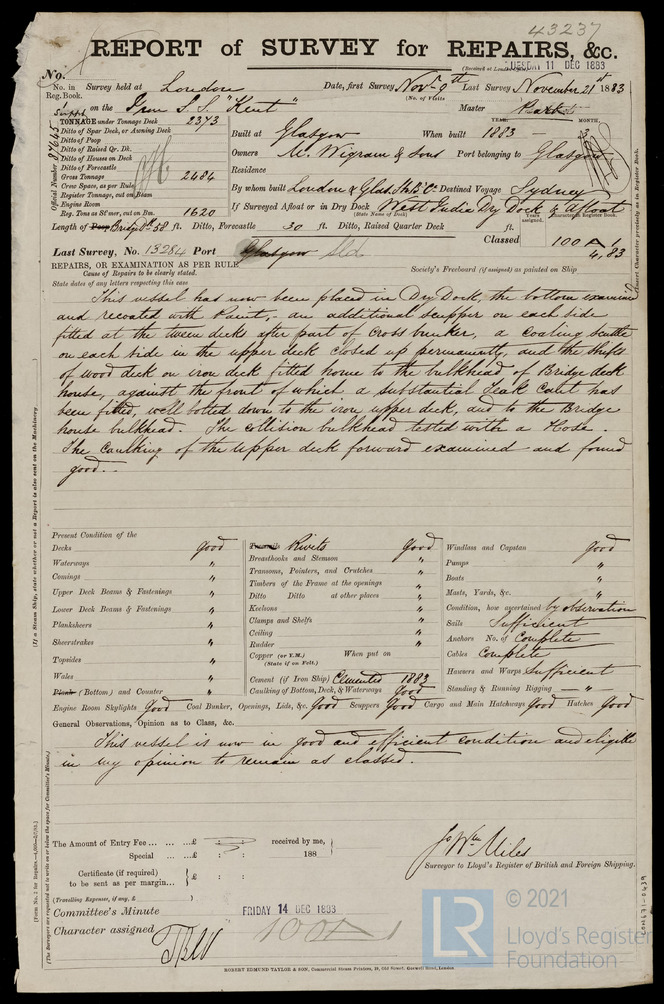 43237
REPORT of SURVEY for REPAIRS, &c.
(Received at London Office) TUESDAY 11 DEC 1883
No.
No. in Reg. Book. Survey held at London Date, first Survey Novr 9th Last Survey November 21st 1883
(No. of Visits)
on the Iron S.S. "Kent" Master
TONNAGE under Tonnage Deck 2373
Ditto of Spar Deck, or Awning Deck
Ditto of Poop
Ditto of Raised Qr. Dk.
Ditto of Houses on Deck
Ditto of Forecastle
Gross Tonnage 2484
Crew Space, as per Rule
Register Tonnage, cut on Beam
Engine Room
Reg. Tons as St'mer, cut on Bm. 1620
Official Number 87645
Built at Glasgow When built 1883 MONTH.
Owners M. Wigram & Sons Port belonging to Glasgow
Residence
By whom built London & Glas. Sh.B. Co. Destined Voyage Sydney
If Surveyed Afloat or in Dry Dock West India Dry Dock & Afloat
(State Name of Dock) Years assigned. Character in Register Book.
Length of Poop Bridge Dk. 58 ft. Ditto, Forecastle 30 ft. Ditto, Raised Quarter Deck ft.
Classed 100 A 1
4, 83
Last Survey, No. 13284 Port Glasgow
REPAIRS, OR EXAMINATION AS PER RULE
Cause of Repairs to be clearly stated.
Society's Freeboard (if assigned) as painted on Ship
State dates of any letters respecting this case
This vessel has now been placed in Dry Dock, the bottom examined
and recoated with Paint, - an additional scupper on each side
fitted at the tween decks after part of cross bunker, a coaling scuttle
on each side in the upper deck closed up permanently, and the shifts
of wood deck on iron deck fitted home to the bulkhead of Bridge deck
house, against the front of which a substantial Teak cant has
been fitted, well bolted down to the iron upper deck, and to the Bridge
house bulkhead. The collision bulkhead tested with a Hose.
The caulking of the upper deck forward examined and found
good.
(If a Steam Ship, state whether or not a Report is also sent on the Machinery.
Present Condition of the
Decks good
Waterways "
Comings "
Upper Deck Beams & Fastenings "
Lower Deck Beams & Fastenings "
Planksheers "
Sheerstrakes "
Topsides "
Wales "
Plank (Bottom) and Counter "
Treenails Rivets Good
Breasthooks and Stemson "
Transoms, Pointers, and Crutches "
Timbers of the Frame at the openings "
Ditto Ditto at other places "
Keelsons "
Clamps and Shelfs "
Ceiling "
Rudder "
Copper (or Y.M.) When put on
(State if on Felt.)
Cement (if Iron Ship) Cemented 1883
Caulking of Bottom, Deck, & Waterways Good
Windlass and Capstan Good
Pumps "
Boats "
Masts, Yards, &c. "
Condition, how ascertained by observation
Sails Sufficient
Anchors No. of Complete
Cables Complete
Hawsers and Warps Sufficient
Standing & Running Rigging "
Engine Room Skylights Good Coal Bunker, Openings, Lids, &c. Good Scuppers Good Cargo and Main Hatchways Good Hatches Good
General Observations, Opinion as to Class, &c.
This vessel is now in good and efficient condition and eligible
in my opinion to remain as classed.
The Amount of Entry Fee ... ... ...£ : : received by me,
Special ... ...£ : : 188
Certificate (if required)
to be sent as per margin... £ : :
(Travelling Expenses, if any, £ )
Jo Wm Miles
Surveyor to Lloyd's Register of British and Foreign Shipping.
Committee's Minute FRIDAY 14 DEC 1883
Character assigned 100A1
ROBERT EDMUND TAYLOR & SON, Commercial Steam Printers, 19, Old Street, Goswell Road, London
LR
© 2021
Lloyd's Register
Foundation